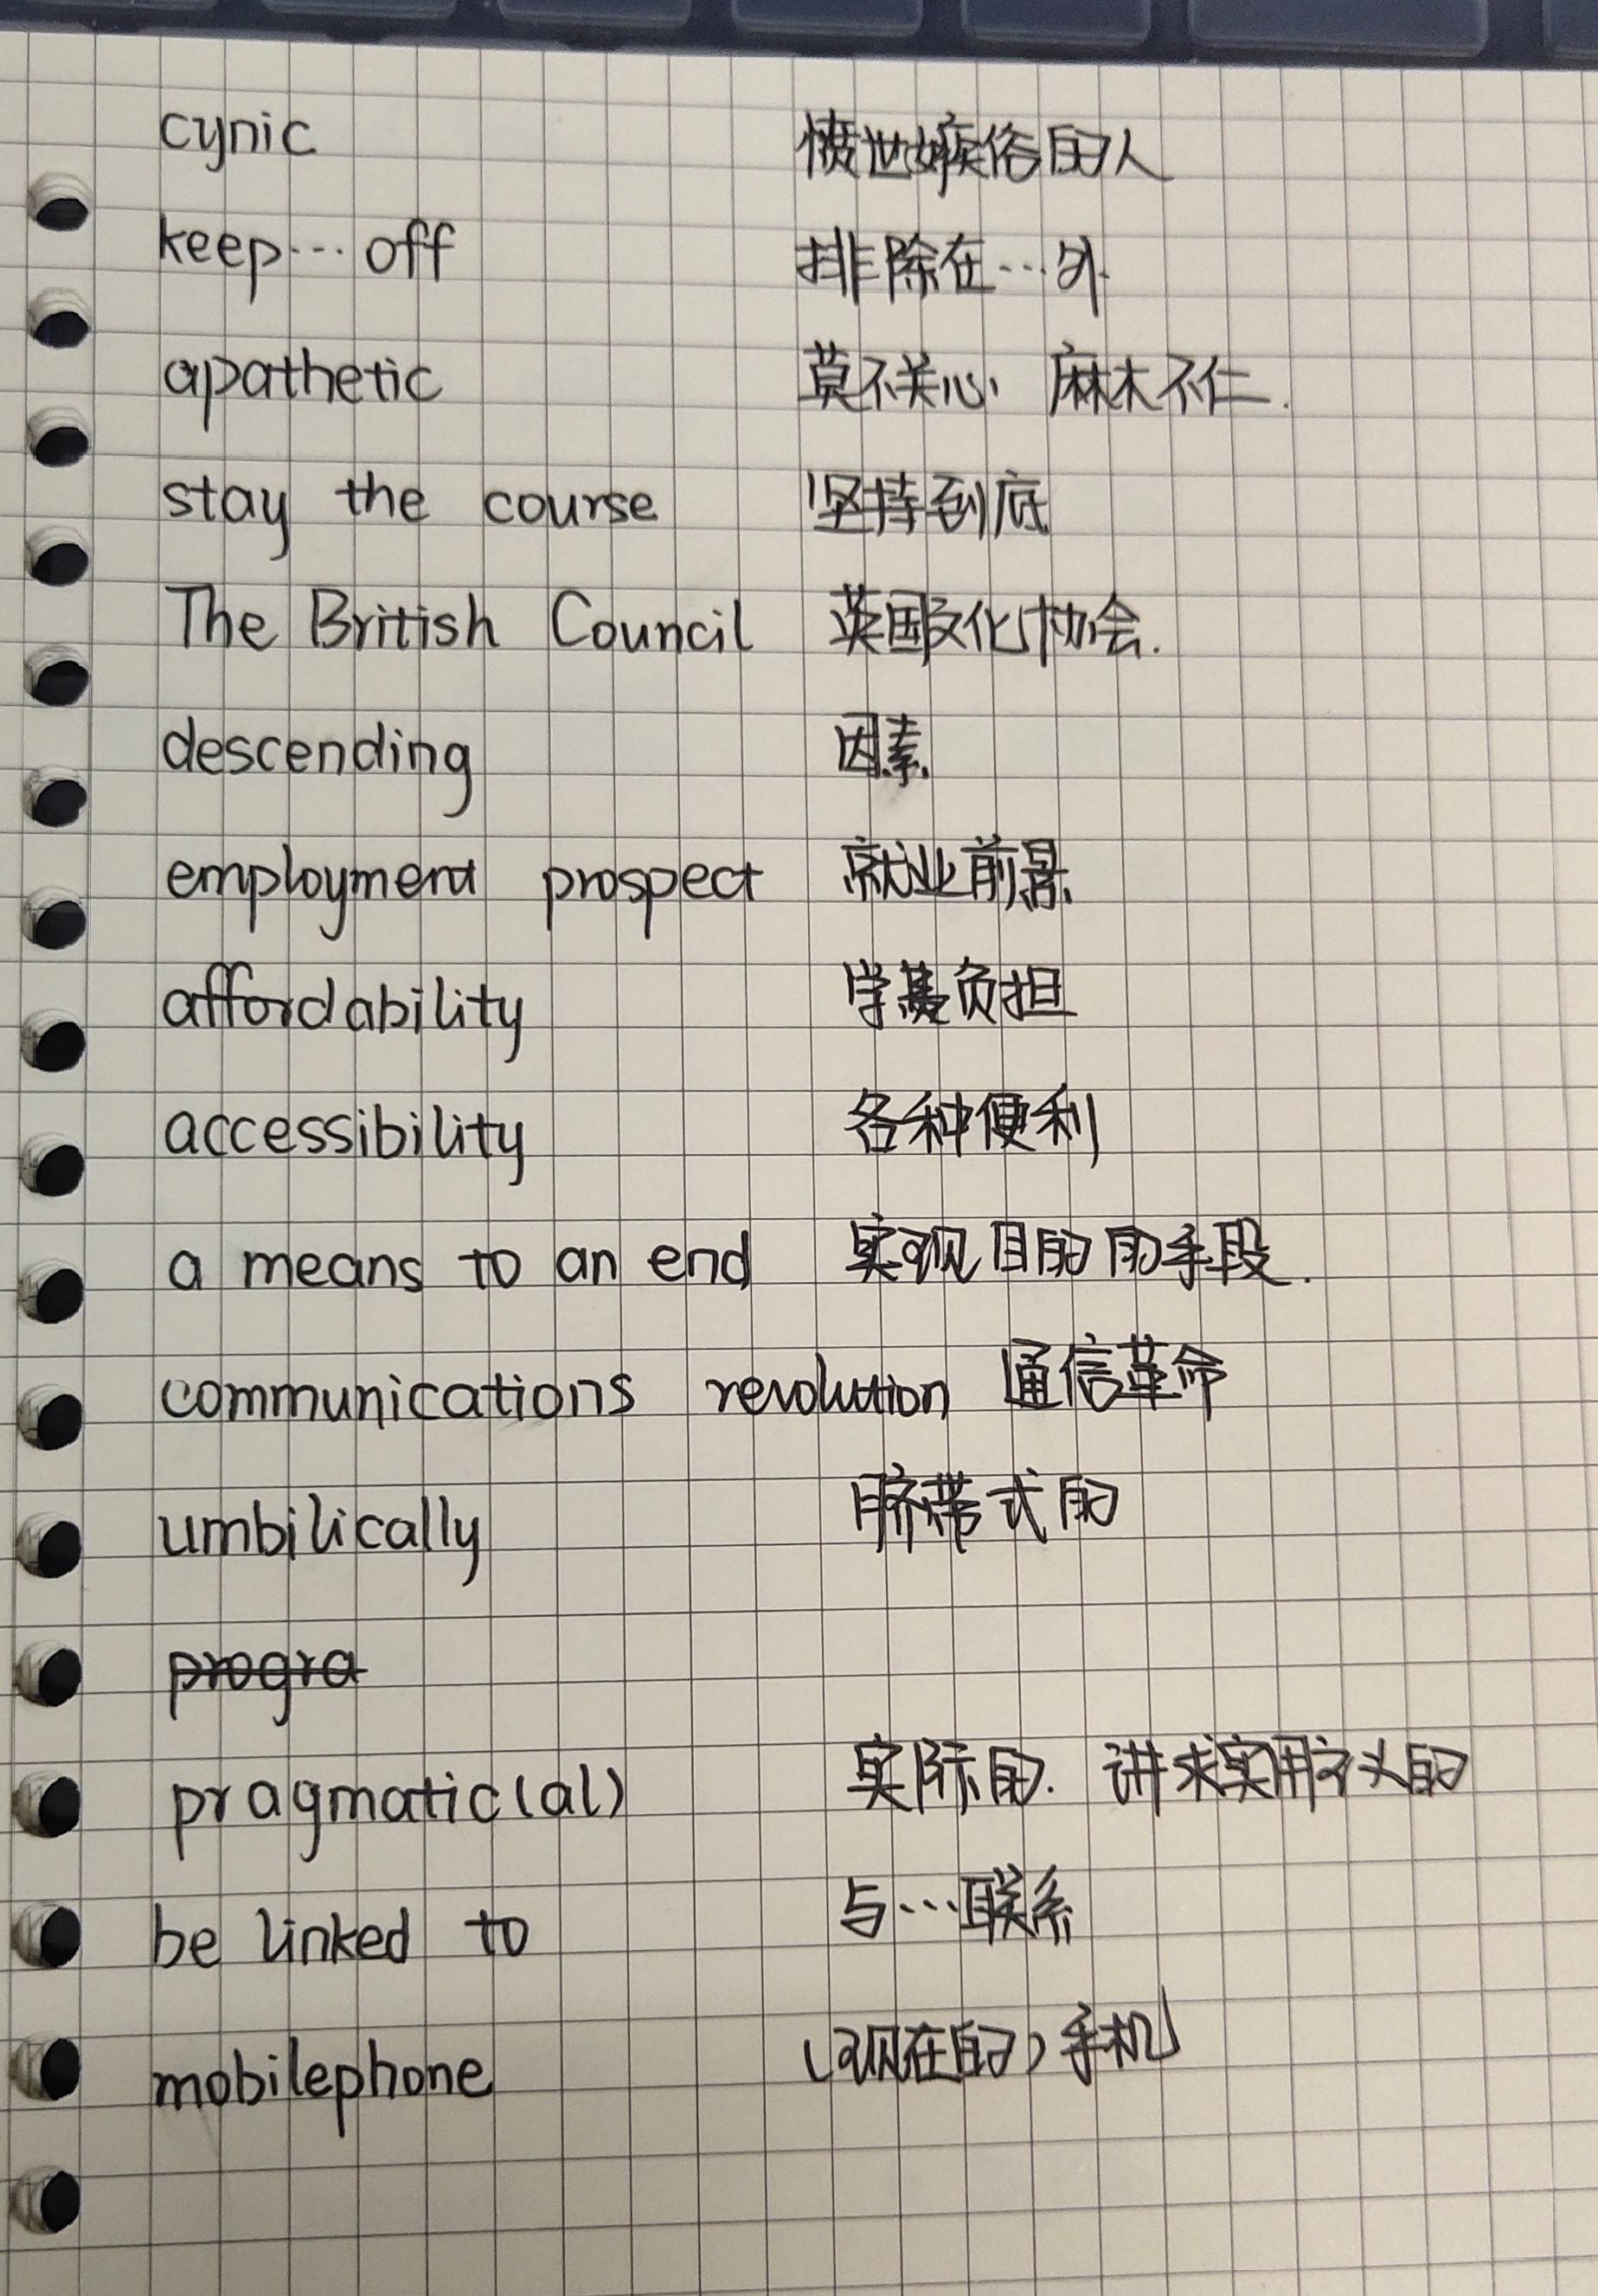 cynic 愤世嫉俗的人
keep…off 排除在…外
apathetic 莫不关心 麻木不仁.
stay the course 坚持到底
The British Council 英国文化协会.
descending 因素
employment prospect 就业前景
affordability 学费负担
accessibility 各种便利
a means to an end 实现目的的手段.
communications revolution 通信革命
umbilically 脐带式的
progra
pragmatic(al) 实际的. 讲求实用主义的
be linked to 与…联系
mobilephone (现在的)手机